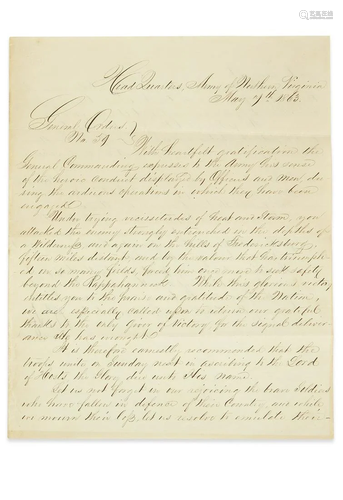 Head Quarters, Army of Northern Virginia
May 7th 1863.
General Orders
No 59
With heartfelt gratification the
General Commanding expresses to the Army his sense
of the heroic conduct displayed by Officers and Men, du-
ring the arduous operations in which they have been
engaged.
Under trying vicissitudes of Heat and Storm, you
attacked the enemy strongly entrenched in the depths of
a Wilderness and again on the hills of Fredericksburg
fifteen miles distant, and by the valour that has triumph-
ed on so many fields, forced him once more to seek safety
beyond the Rappahannock. While this glorious victory
entitles you to the praise and gratitude of the Nation,
we are especially called upon to return our grateful
thanks to the only Giver of Victory for the signal deliver-
ance He has wrought.
It is therefore earnestly recommended that the
troops unite on Sunday next in ascribing to the Lord
of Hosts the Glory due unto His Name.
Let us not forget in our rejoicing the brave Soldiers
who have fallen in defence of their Country, and while
we mourn their loss, let us resolve to emulate their